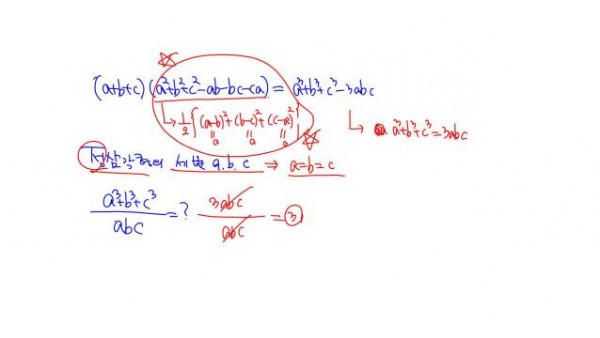 (a+b+c)(a²+b²+c²-ab-bc-ca) = a³+b³+c³-3abc
↳ ½{(a-b)²+(b-c)²+(c-a)²}
↳ a³+b³+c³=3abc
정삼각형의 세 변 a.b.c ⇒ a=b=c
(a³+b³+c³)/abc = ? 3abc/abc = 3